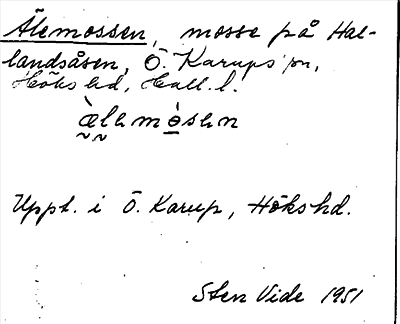 Älemossen, mosse på Hal-
landsåsen, Ö. Karups sn,
Höks hd, Hall. l.
æ̀lamòsan
Uppt. i Ö. Karup, Höks hd.
Sten Vide 1951